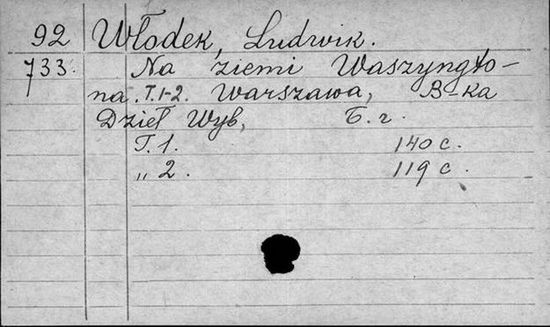 92 Włodek, Ludwik.
733. Na ziemi Waszyngto-
na. T. 1-2. Warszawa, B-ka
Dzieł Wyb, Б. г.
T. 1. 140 с.
„ 2. 119 с.